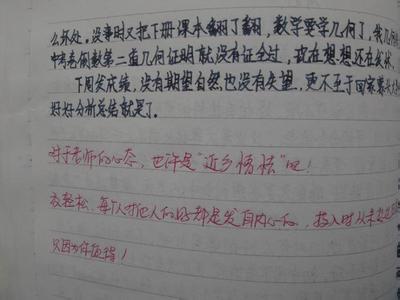 么坏处。没事时又把下册课本翻了翻,数学要学几何了,我几何
中考卷倒数第二道几何证明就没有证全过,现在想想还在
下周发成绩,没有期望自然也没有失望,更不至于国家
好好分析总结就是了。
对于老师的心态,也许是“近乡情怯”吧!
轻松,每个人对他人的好都是发自内心的,投入时从未
只因为你值得!